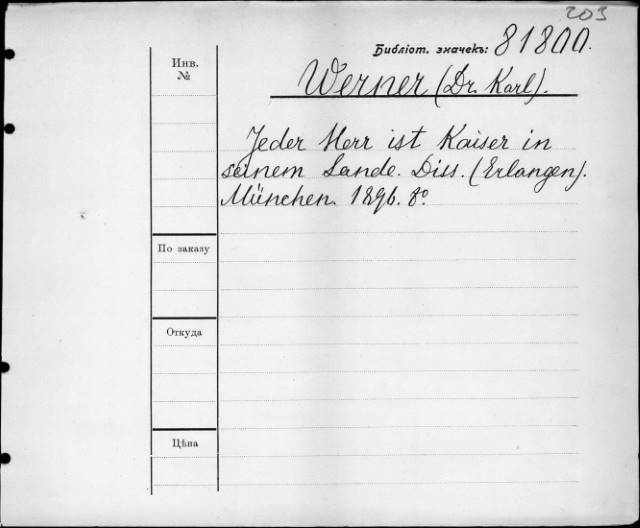 203
Библіот. значекъ: 81800.
Инв.
№
Werner (Dr. Karl).
Jeder Herr ist Kaiser in
seinem Lande. Diss. (Erlangen).
München. 1896. 8º
По заказу
Откуда
Цѣна